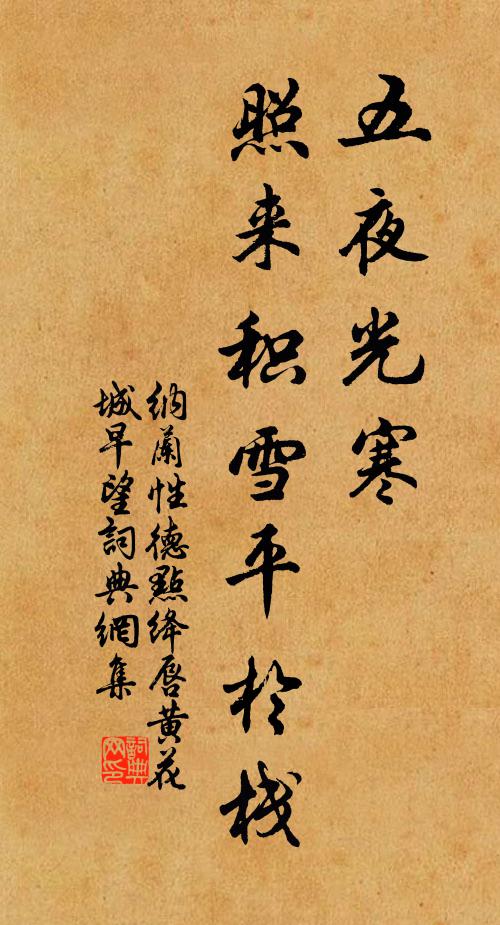 五夜光寒
照来积雪平於栈
纳蘭性德點绛唇黄花
城早望詞典網集
詞典网印